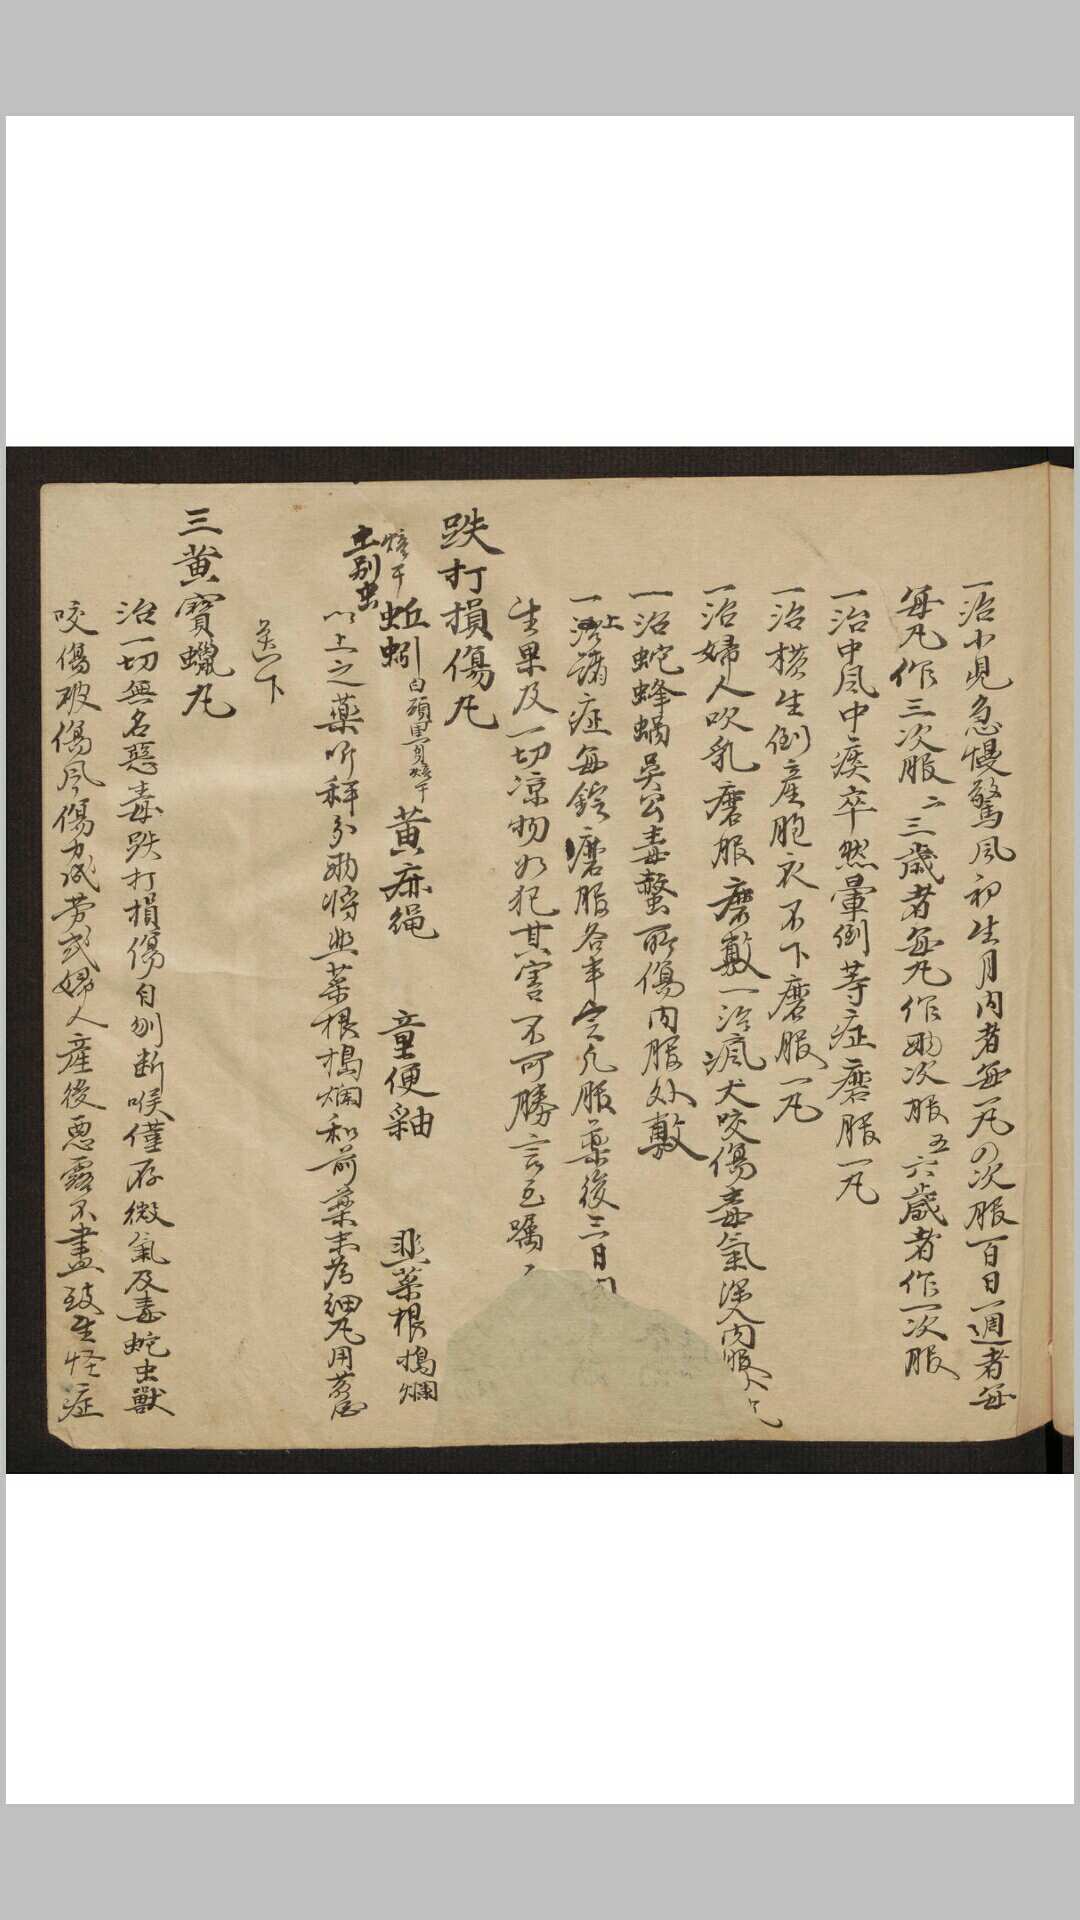 一治小児急慢驚風初生月内者每一丸の次服百日一週者每
每丸作三次服二三歲者每丸作兩次服五六歲者作一次服
一治中風中痰卒然暈倒等症磨服一丸
一治橫生倒產胞衣不下磨服一丸
一治婦人吹乳磨服磨敷一治瘋犬咬傷毒氣深入内服
一治蛇蜂蝎吳公毒螫所傷内服外敷
一上諸症每錠磨服各半凡服藥後三日内
生果及一切凉物如犯其害不可勝言至囑
跌打損傷丸
焙干
土別虫
蚯蚓白頭焙干 黃麻繩 童便釉 韭菜根搗爛
以上之藥听秤分兩將韭菜根搗爛和前藥末為細丸用
送下
三黃寶蠟丸
治一切無名惡毒跌打損傷自刎断喉僅存微氣及毒蛇虫獸
咬傷破傷風傷力成勞或婦人產後惡露不盡致生怪症